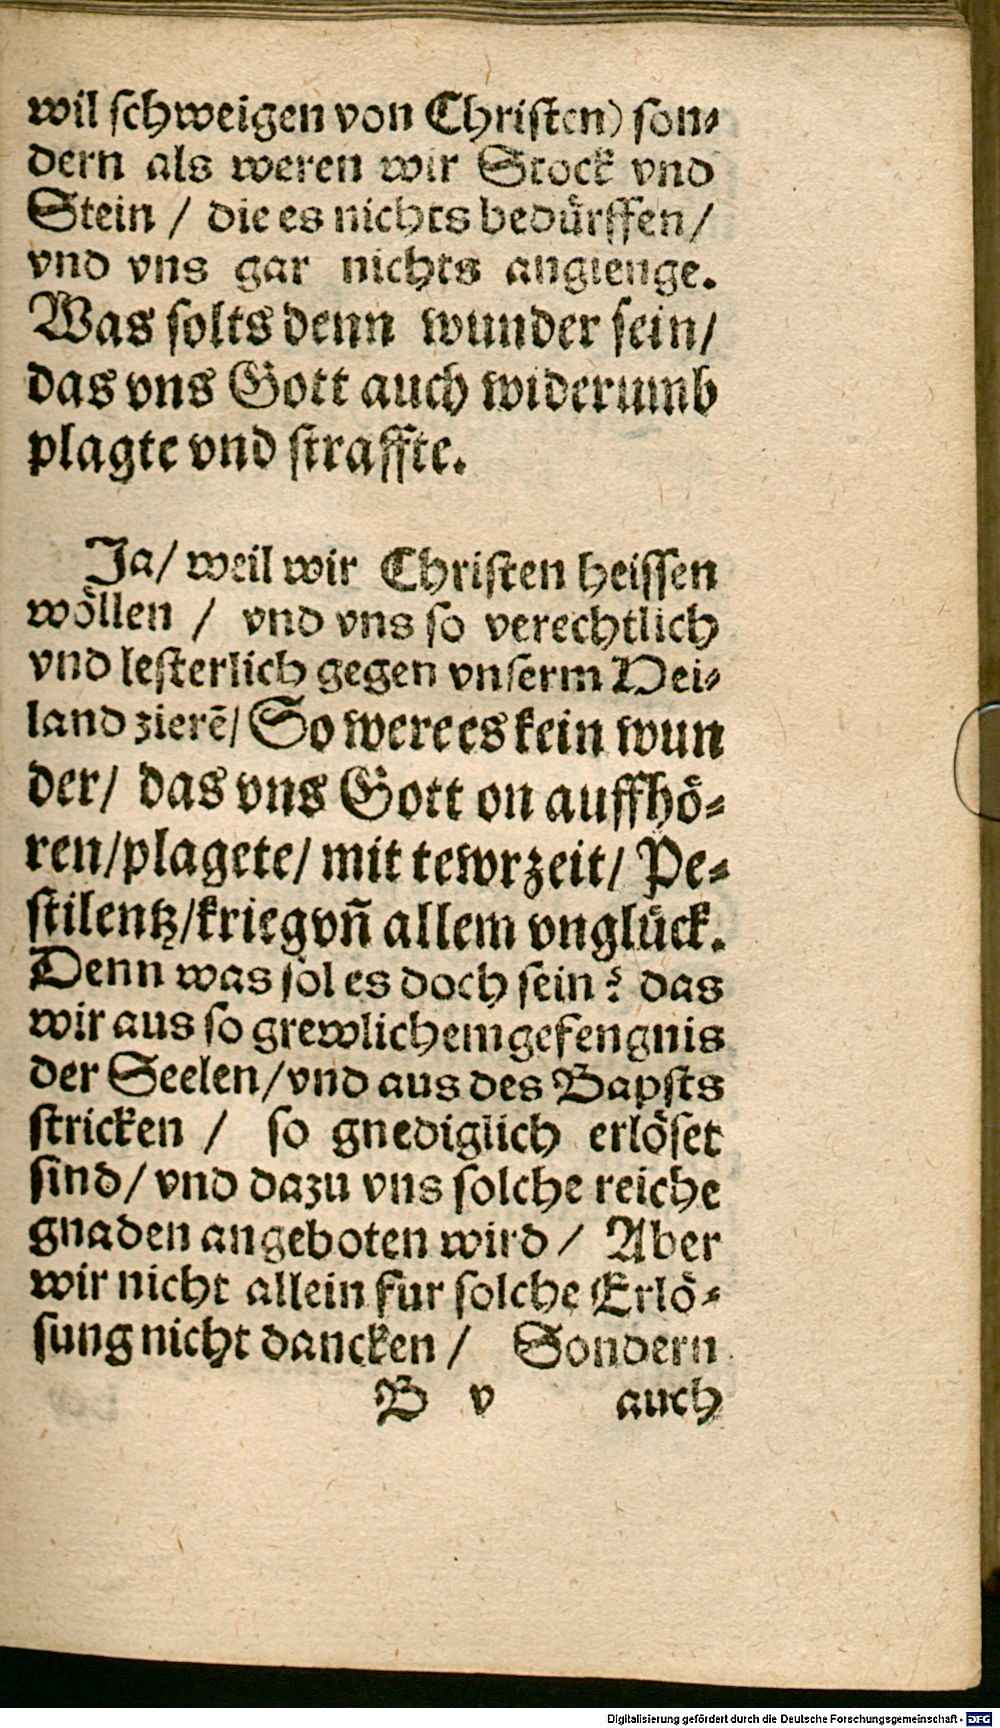 wil ſchweigen von Chriſten) ſon⸗
dern als weren wir Stock vnd
Stein / die es nichts bedürffen /
vnd vns gar nichts angienge.
Was ſolts denn wunder ſein /
das vns Gott auch widerumb
plagte vnd ſtraffte.
Ja / weil wir Chriſten heiſſen
wöllen / vnd vns ſo verechtlich
vnd leſterlich gegen vnſerm Hei⸗
land zierē / So were es kein wun
der / das vns Gott on auffhö⸗
ren / plagete / mit tewrzeit / Pe⸗
ſtilentz / krieg vñ allem vnglück.
Denn was ſol es doch ſein? das
wir aus ſo grewlichem gefengnis
der Seelen / vnd aus des Bapſts
ſtricken / ſo gnediglich erlöſet
ſind / vnd dazu vns ſolche reiche
gnaden angeboten wird / Aber
wir nicht allein fur ſolche Erlö⸗
ſung nicht dancken / Sondern
B v auch
Digitalisierung gefördert durch die Deutsche Forschungsgemeinschaft - DFG